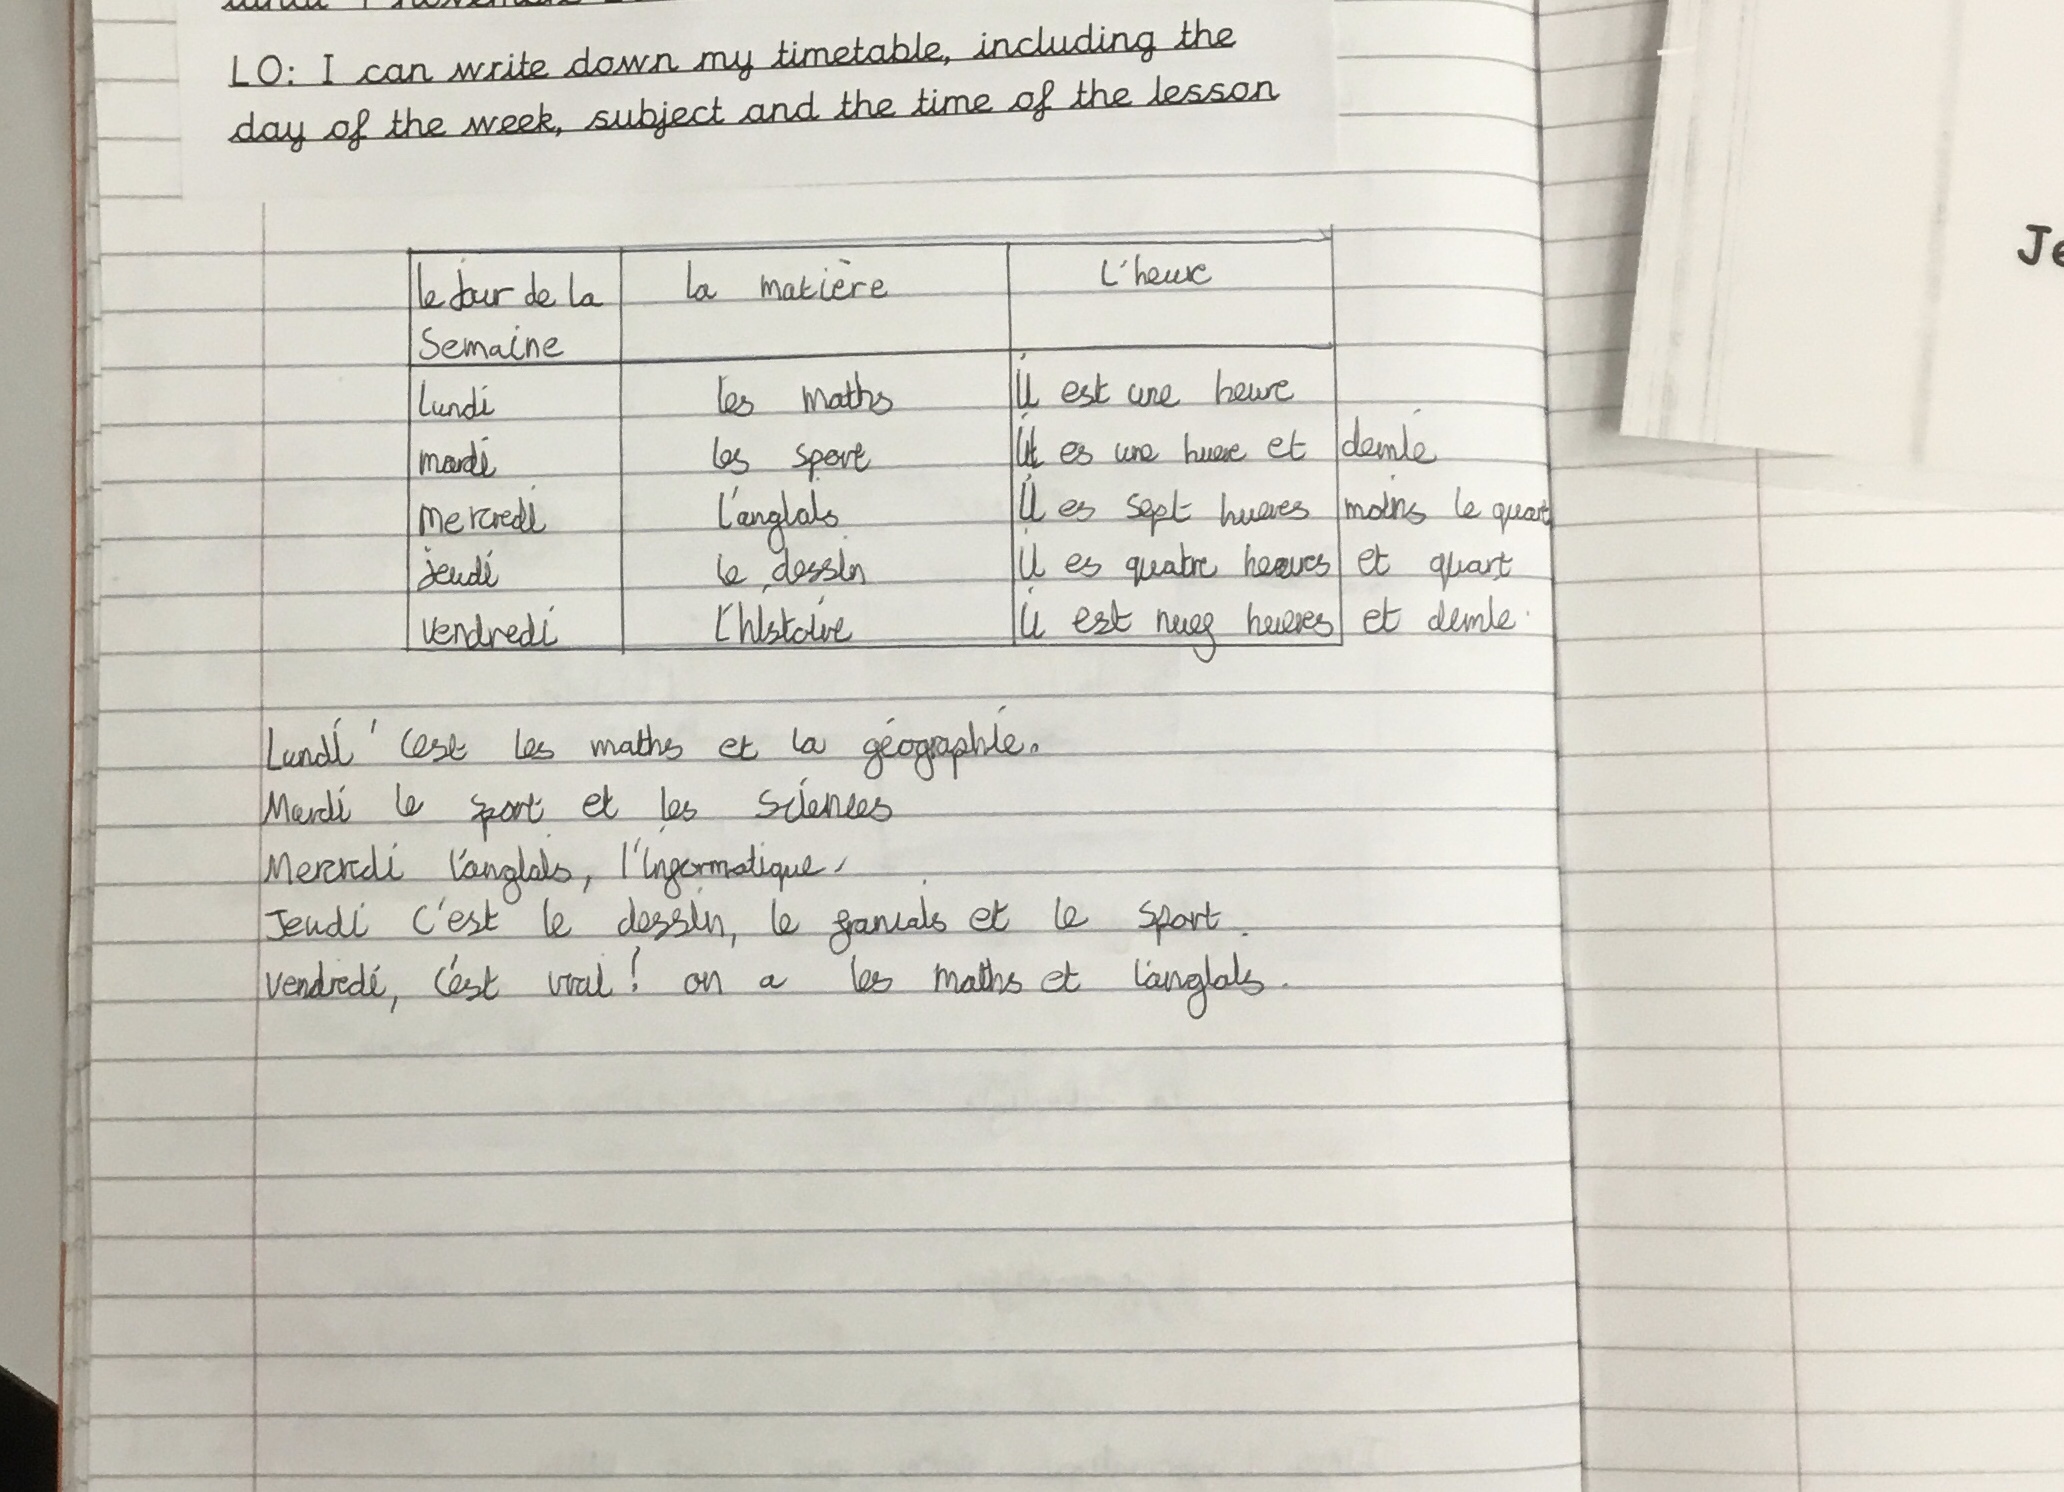 LO: I can write down my timetable, including the
day of the week, subject and the time of the lesson
le jour de la semaine | la matière | L'heure
lundi | les maths | il est une heure
mardi | les sport | il es une huere et demie
mercredi | l'anglais | il es sept hueres moins le quart
jeudi | le dessin | il es quatre heures et quart
vendredi | l'histoire | il est neuf heures et demie.
Lundi c'est les maths et la géographie.
Mardi le sport et les sciences
Mercredi l'anglais, l'informatique.
Jeudi C'est le dessin, le francais et le sport.
vendredi, c'est vrai! on a les maths et l'anglais.
Je